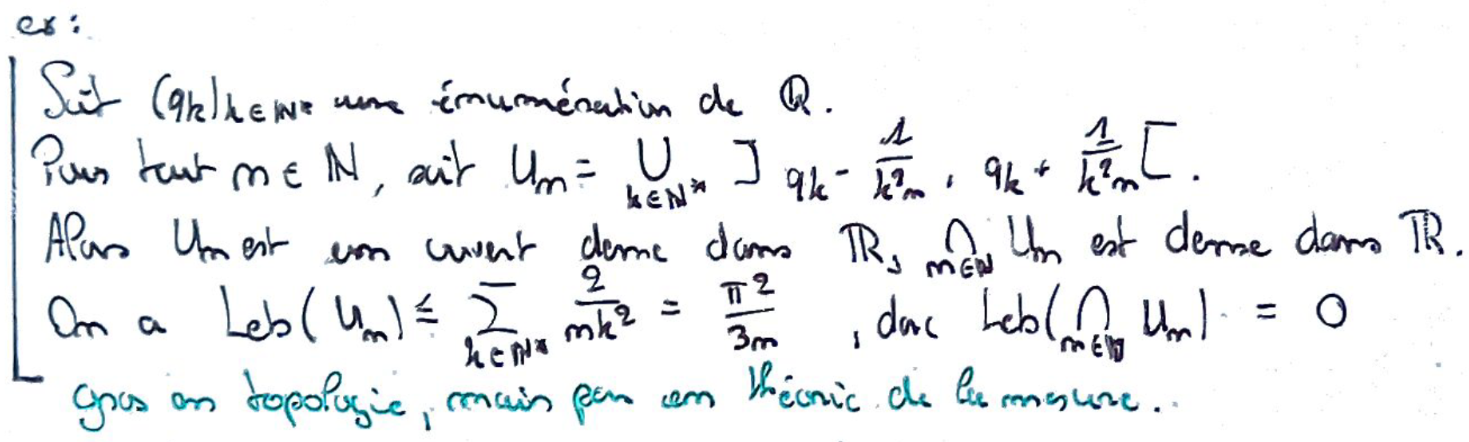 ex :
Soit (qk)k∈ℕ* une énumération de ℚ.
Pour tout n ∈ ℕ, soit Un = ⋃k∈ℕ* ] qk - 1/k²n , qk + 1/k²n [.
Alors Un est un ouvert dense dans ℝ, ⋂n∈ℕ Un est dense dans ℝ.
On a Leb(Un) ≤ ∑k∈ℕ* 2/nk² = π²/3n , donc Leb(⋂n∈ℕ Un) = 0
gros en topologie, mais pas en théorie de la mesure.